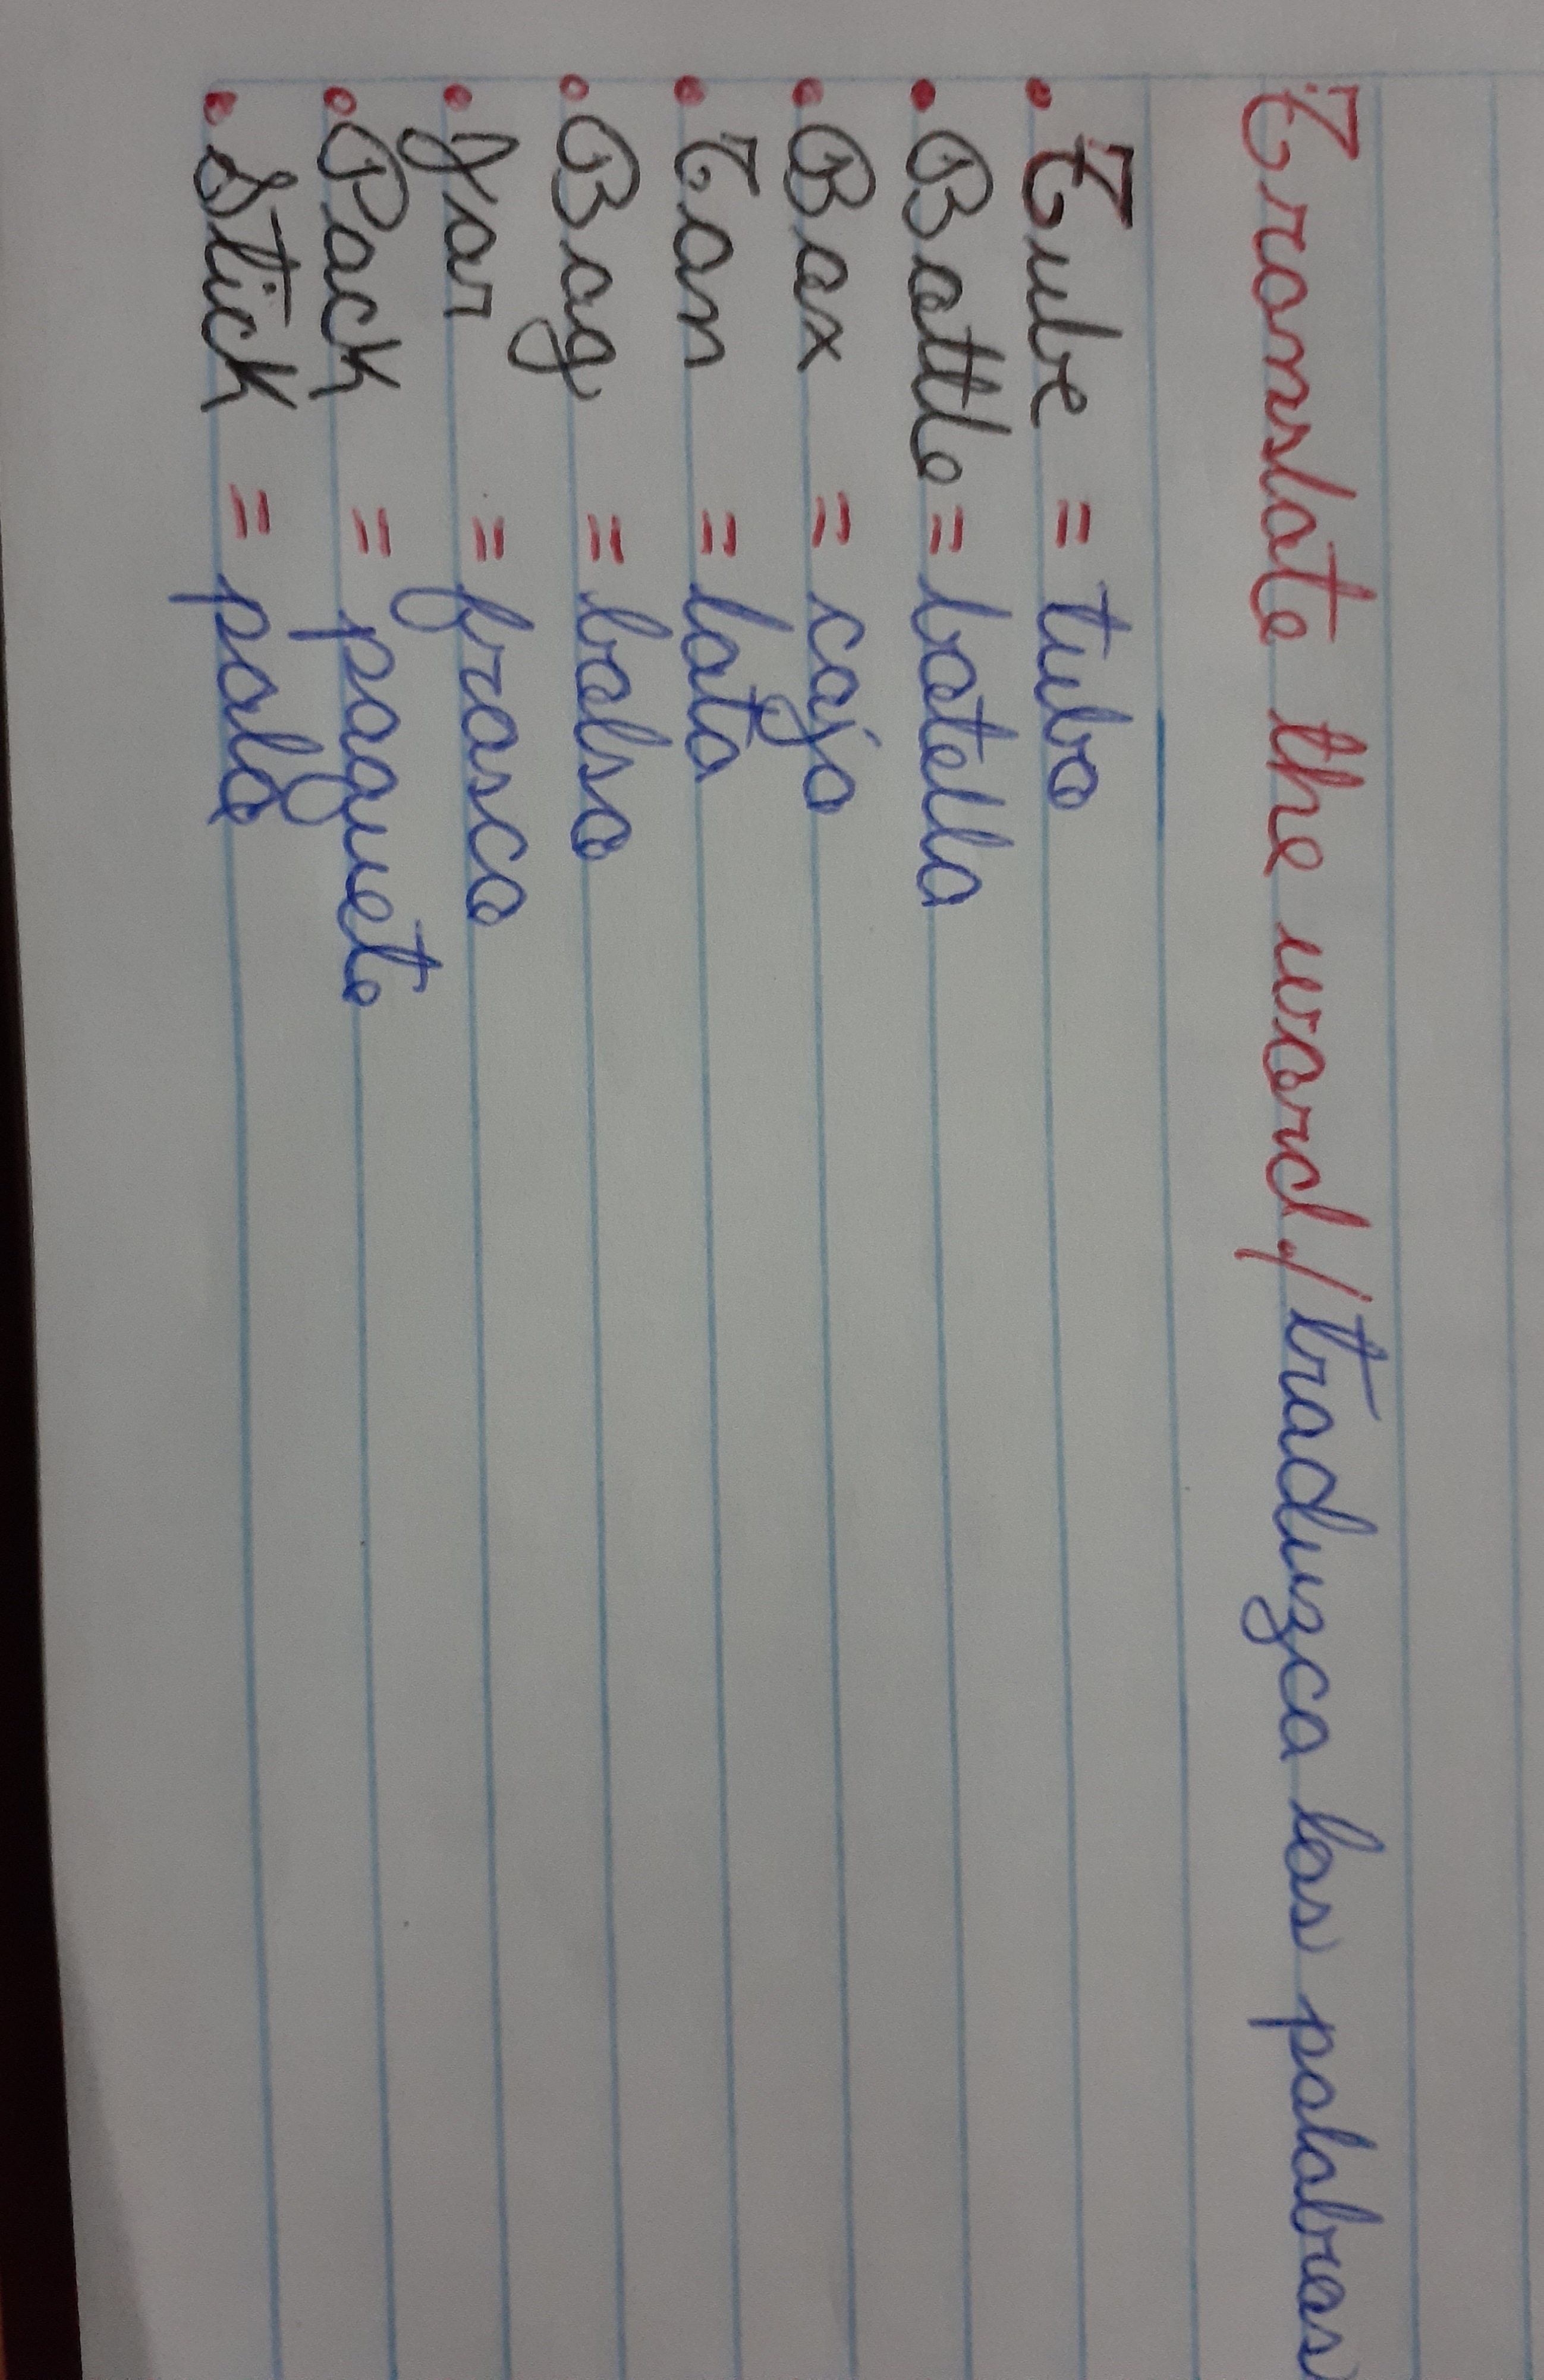 Translate the word,/traduzca las palabras
• Tube = tubo
• Bottle = botella
• Box = caja
• Tan = lata
• Bag = bolsa
• Jar = frasco
• Pack = paquete
• Stick = palo